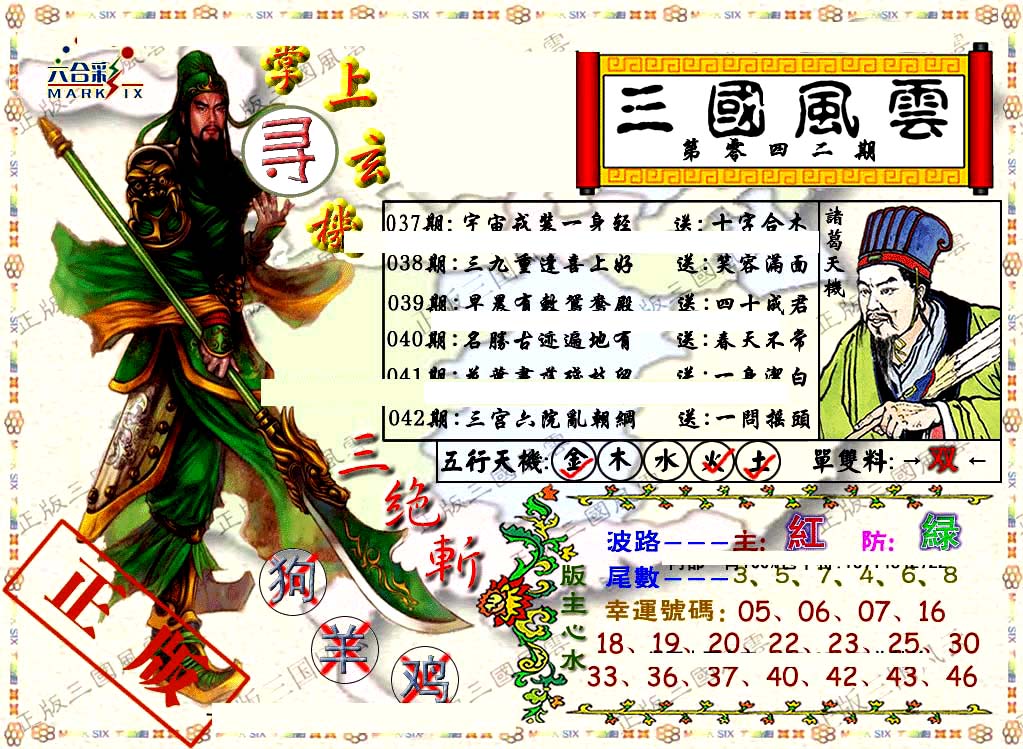 六合彩
MARK SIX
掌上玄機
尋
三國風雲
第零四二期
037期:宇宙戎裝一身轻 送:十字合木
038期:三九重逢喜上好 送:笑容滿面
039期:早晨有數鴛鴦殿 送:四十成君
040期:名勝古迹遍地有 送:春天不常
041期: 送:一身潔白
042期:三宫六院亂朝綱 送:一問摇頭
諸葛天機
五行天機:金木水火土 單雙料:→双←
三絕斬
狗
羊
鸡
正版
版主心水
波路———主:紅 防:緑
尾數———3、5、7、4、6、8
幸運號碼:05、06、07、16
18、19、20、22、23、25、30
33、36、37、40、42、43、46
正版三國風雲